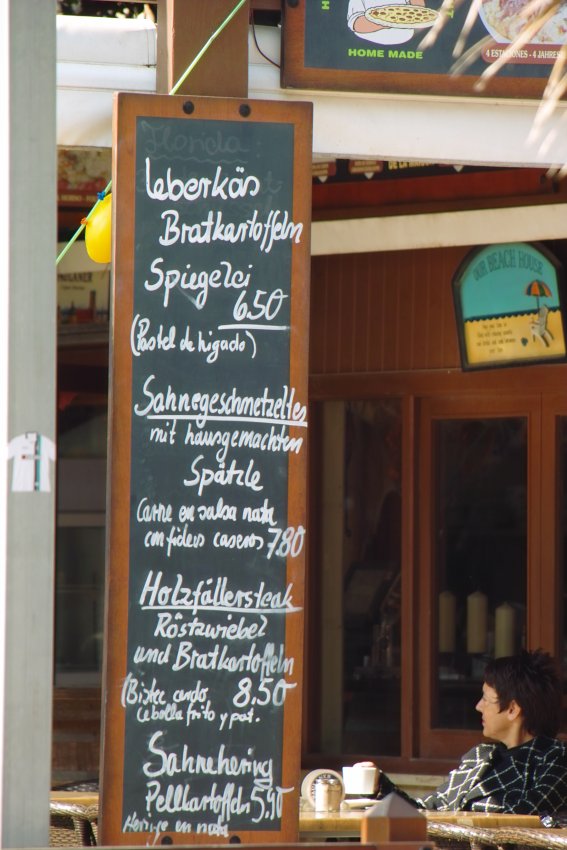 HOME MADE
4 ESTACIONES - 4 JAHRE
Florida
Leberkäs
Bratkartoffeln
Spiegelei
6.50
(Pastel de higado)
Sahnegeschmetzeltes
mit hausgemachten
Spätzle
Carne en salsa nata
con fideos caseros 7.80
Holzfällersteak
Röstzwiebel
und Bratkartoffeln
(Bistec cerdo 8.50
cebolla frito y pat.
Sahnehering
Pellkartoffeln 5.90
en nata
OUR BEACH HOUSE
PAULANER